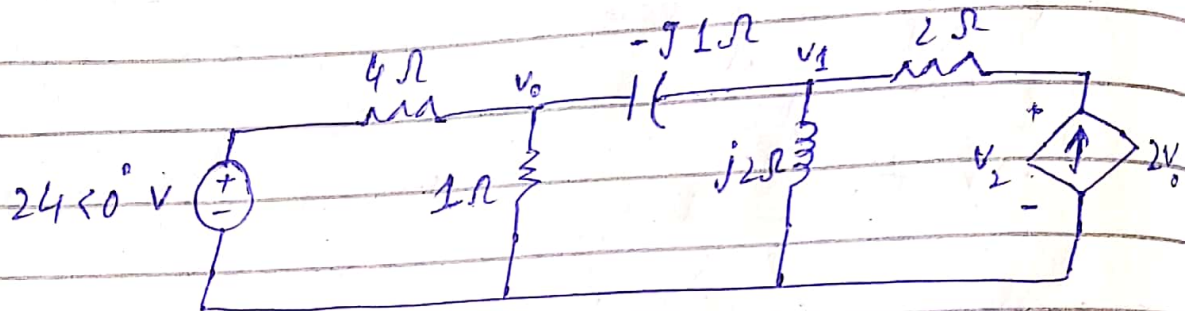 4Ω
V₀
-j1Ω
V1
2Ω
24<0° V
+
-
1Ω
j2Ω
+
V₂
-
2V₀